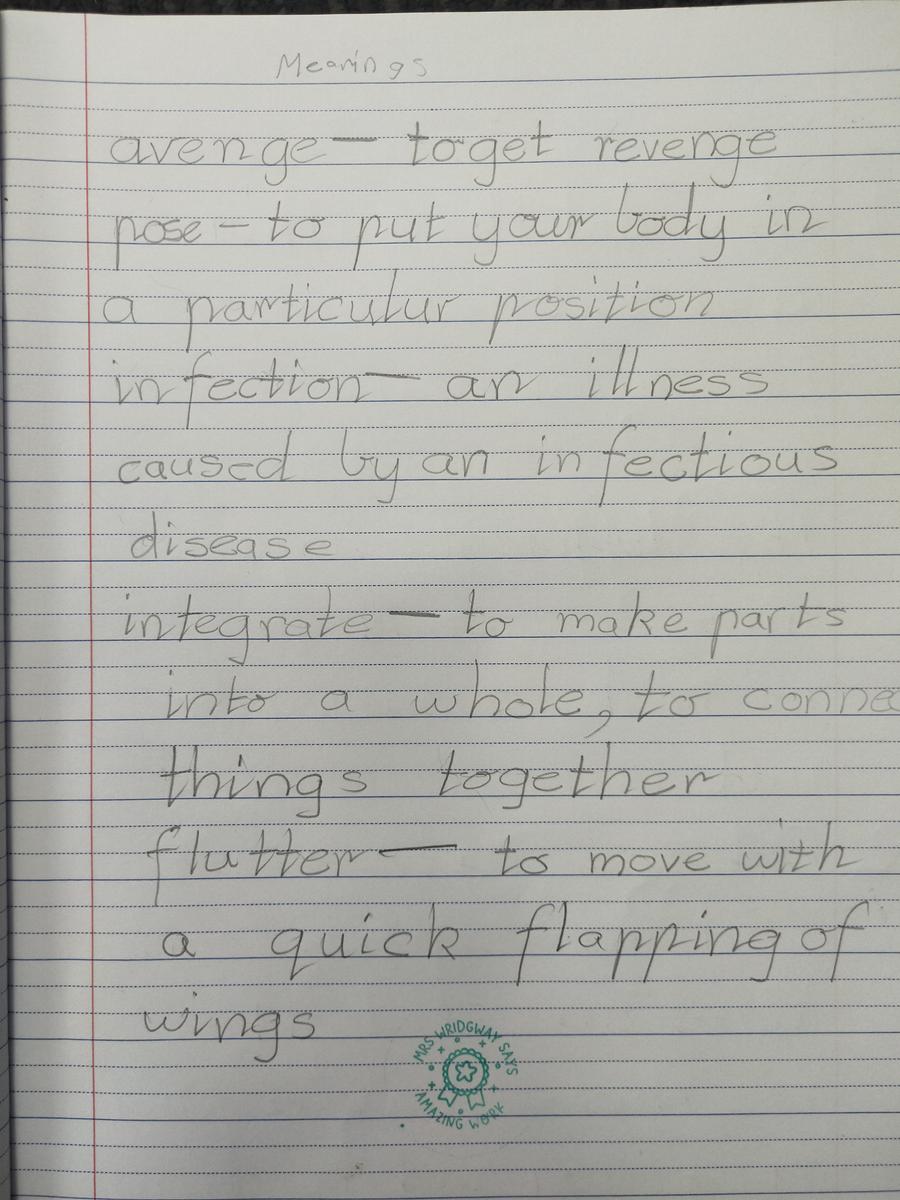 Meanings
avenge — to get revenge
pose - to put your body in
a particulur position
infection — an illness
caused by an infectious
disease
integrate — to make parts
into a whole, to conne
things together
flutter — to move with
a quick flapping of
wings
MRS WRIDGWAY SAYS
AMAZING WORK